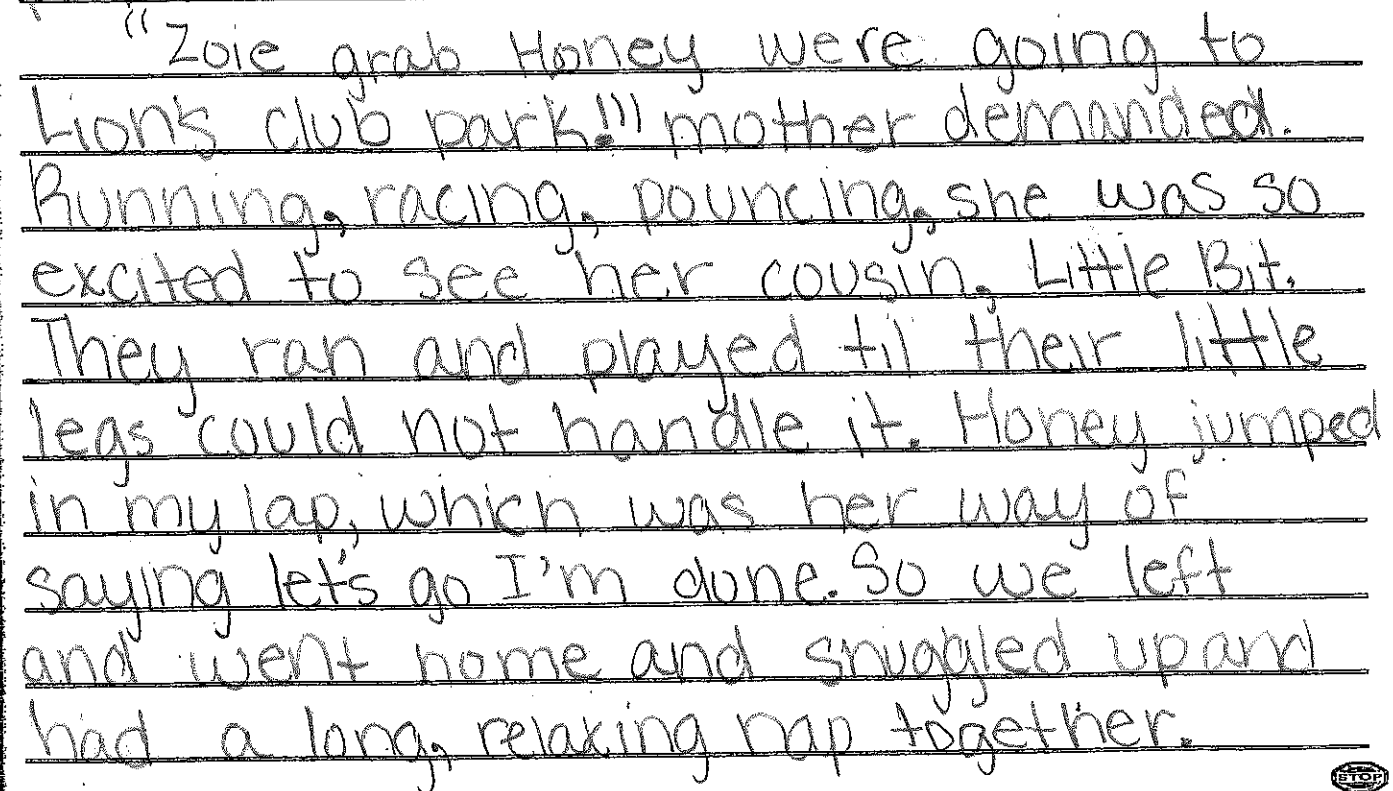 "Zoie grab Honey were going to
Lion's club park!!" mother demanded.
Running, racing, pouncing, she was so
excited to see her cousin, Little Bit.
They ran and played til their little
legs could not handle it. Honey jumped
in my lap, which was her way of
saying let's go I'm done. So we left
and went home and snuggled up and
had a long, relaxing nap together.
STOP